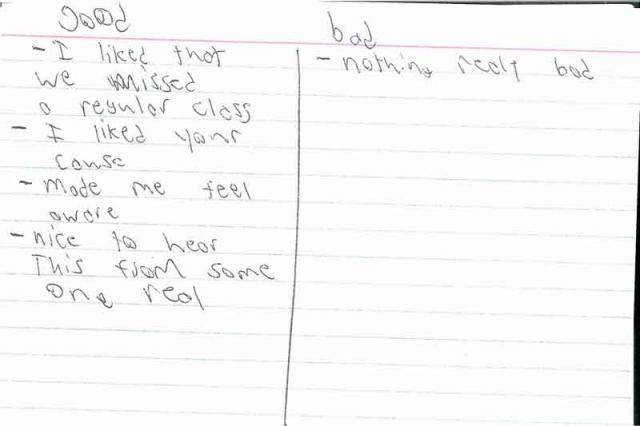 good
- I liked that
we missed
a regular class
- I liked your
cause
- made me feel
aware
- nice to hear
This from some
one real
bad
- nothing realy bad